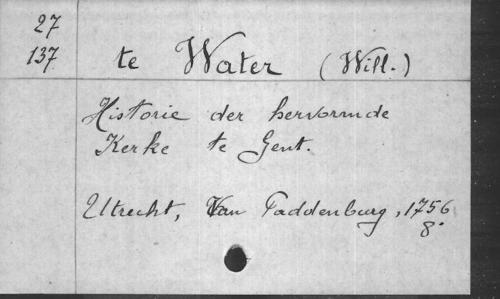 27
137
te Water (Will.)
Historie der hervormde
Kerke te Gent.
Utrecht, Van Paddenburg, 1756
8°